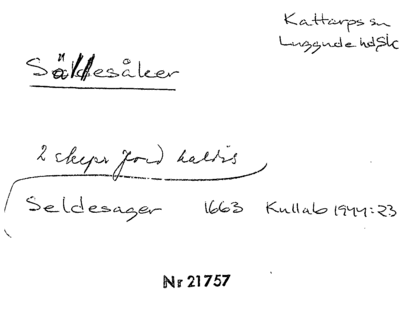 Kattarps sn
Luggude hd, Sk
Säldesåker
2 skepr Jord kaldis
Seldesager 1663 Kullab 1944:23
Nr 21757